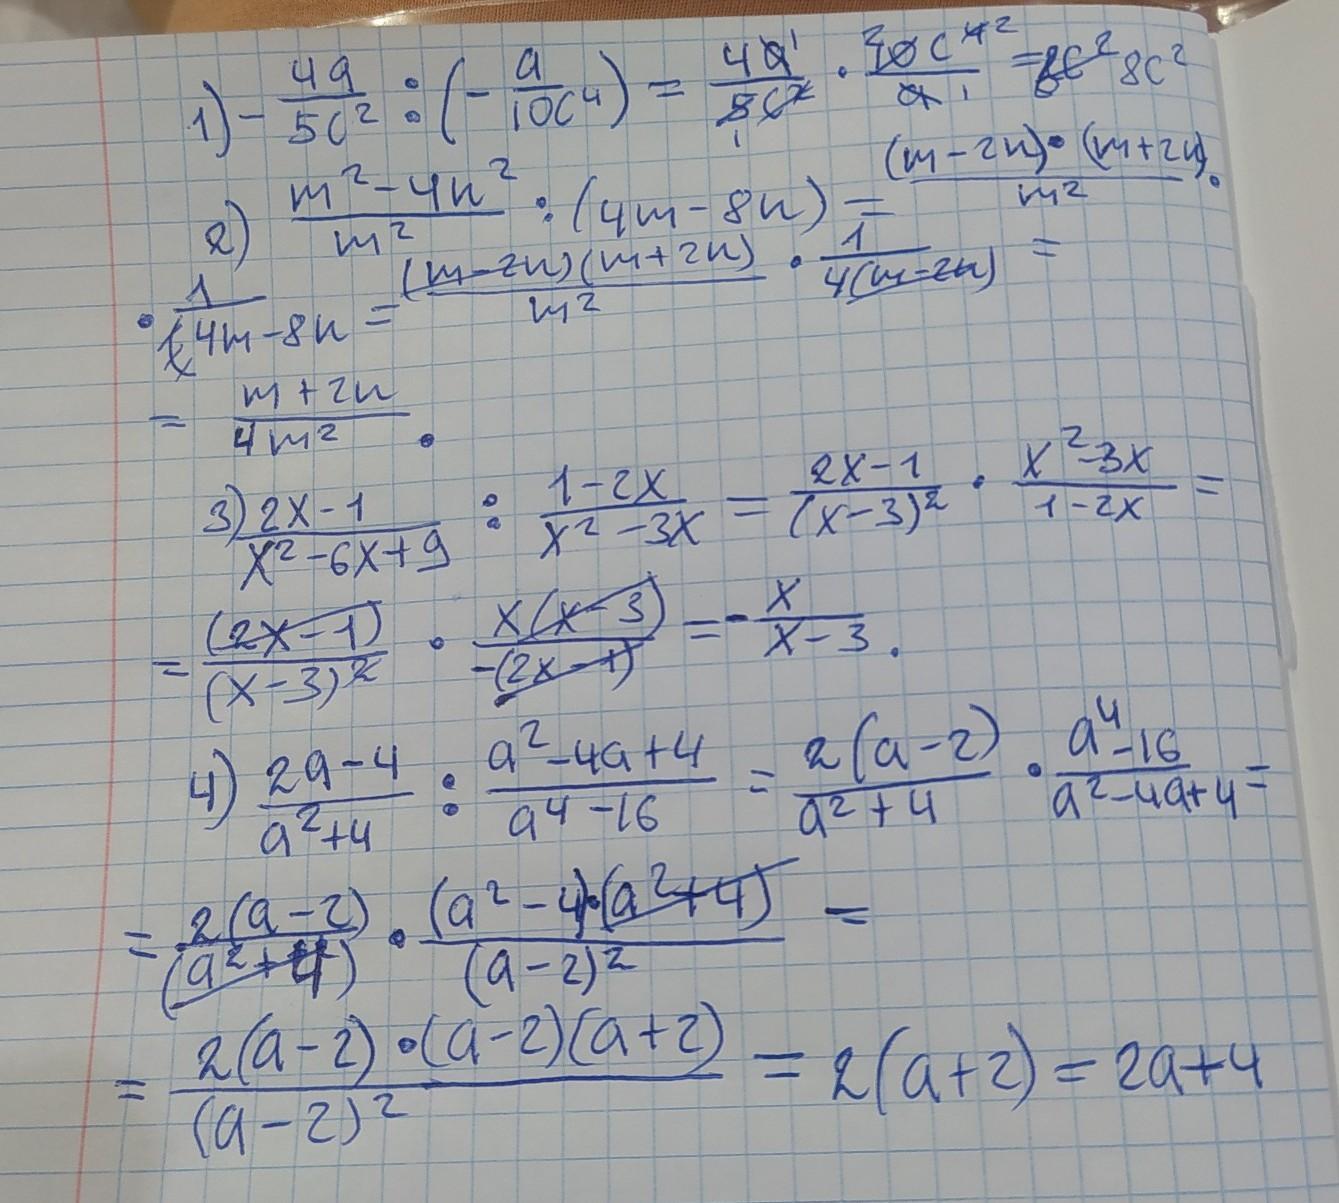 1) - 4a/5c² : (- a/10c⁴) = 4a/5c² · 10c⁴/a = 8c²
2) (m² - 4n²)/m² : (4m - 8n) = (m - 2n)·(m + 2n)/m² ·
· 1/(4m - 8n) = (m - 2n)(m + 2n)/m² · 1/4(m - 2n) =
= (m + 2n)/4m².
3) (2x - 1)/(x² - 6x + 9) : (1 - 2x)/(x² - 3x) = (2x - 1)/(x - 3)² · (x² - 3x)/(1 - 2x) =
= (2x - 1)/(x - 3)² · x(x - 3)/-(2x - 1) = - x/(x - 3).
4) (2a - 4)/(a² + 4) : (a² - 4a + 4)/(a⁴ - 16) = 2(a - 2)/(a² + 4) · (a⁴ - 16)/(a² - 4a + 4) =
= 2(a - 2)/(a² + 4) · (a² - 4)·(a² + 4)/(a - 2)² =
= 2(a - 2)·(a - 2)(a + 2)/(a - 2)² = 2(a + 2) = 2a + 4